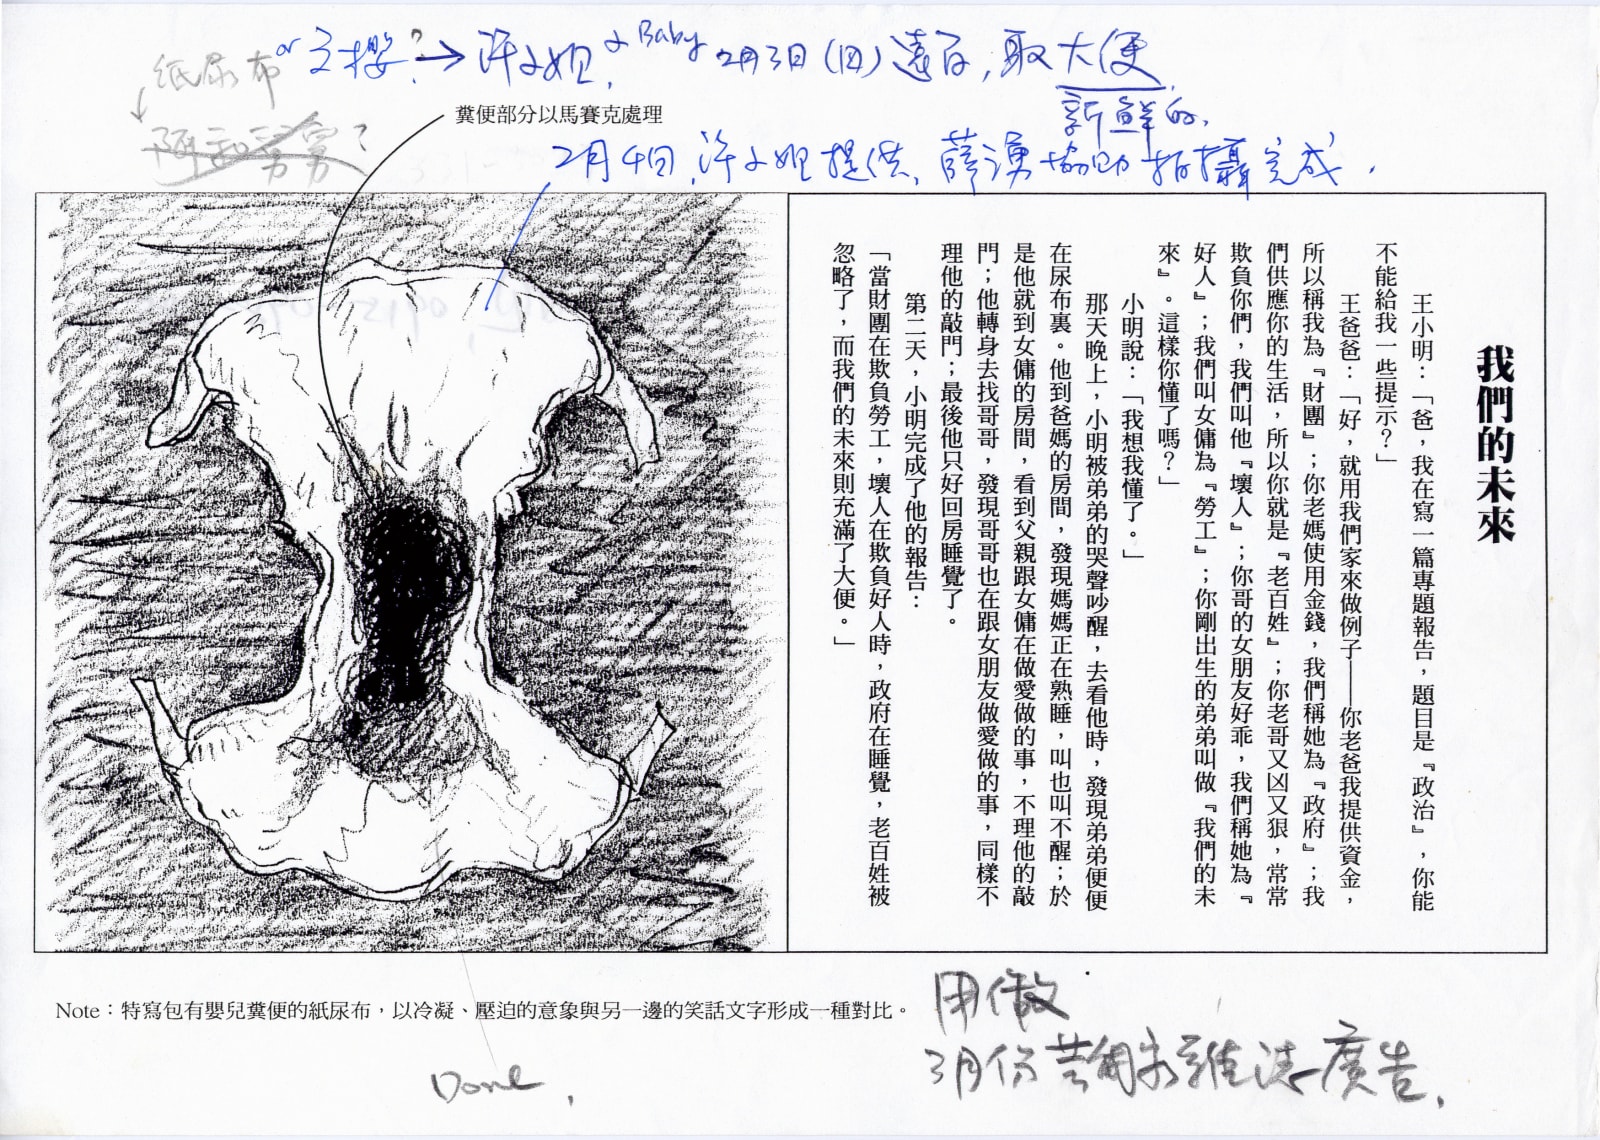 紙尿布
or
文櫻?→許小姐,
Baby
2月3日(日)遠百,取大便
新鮮的,
糞便部分以馬賽克處理
2月4日,許小姐提供,薛湧協助拍攝完成.
我們的未來
王小明:「爸,我在寫一篇專題報告,題目是『政治』,你能
不能給我一些提示?」
王爸爸:「好,就用我們家來做例子——你老爸我提供資金,
所以稱我為『財團』;你老媽使用金錢,我們稱她為『政府』;我
們供應你的生活,所以你就是『老百姓』;你老哥又凶又狠,常常
欺負你們,我們叫他『壞人』;你哥的女朋友好乖,我們稱她為『
好人』;我們叫女傭為『勞工』;你剛出生的弟弟叫做『我們的未
來』。這樣你懂了嗎?」
小明說:「我想我懂了。」
那天晚上,小明被弟弟的哭聲吵醒,去看他時,發現弟弟便便
在尿布裏。他到爸媽的房間,發現媽媽正在熟睡,叫也叫不醒;於
是他就到女傭的房間,看到父親跟女傭在做愛做的事,不理他的敲
門;他轉身去找哥哥,發現哥哥也在跟女朋友做愛做的事,同樣不
理他的敲門;最後他只好回房睡覺了。
第二天,小明完成了他的報告:
「當財團在欺負勞工,壞人在欺負好人時,政府在睡覺,老百姓被
忽略了,而我們的未來則充滿了大便。」
Note:特寫包有嬰兒糞便的紙尿布,以冷凝、壓迫的意象與另一邊的笑話文字形成一種對比。
用做
3月份芭雜誌廣告.
Done,